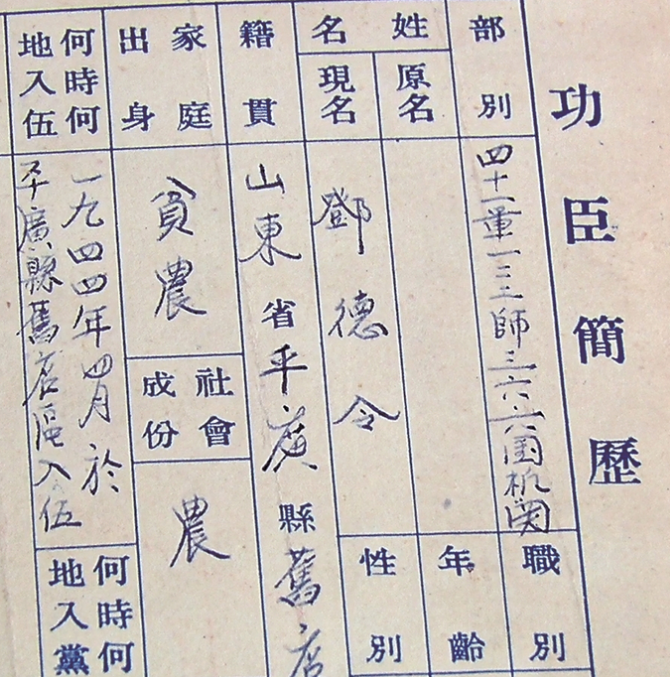 功臣簡歷
部別
四十一軍一二三師三六六团机関
職別
年齡
性別
姓名
原名
現名
鄧德令
籍貫
山東省平廣縣舊店
家庭出身
貧農
社會成份
農
何時何地入伍
一九四四年四月於
平廣縣舊店區入伍
何時何地入黨